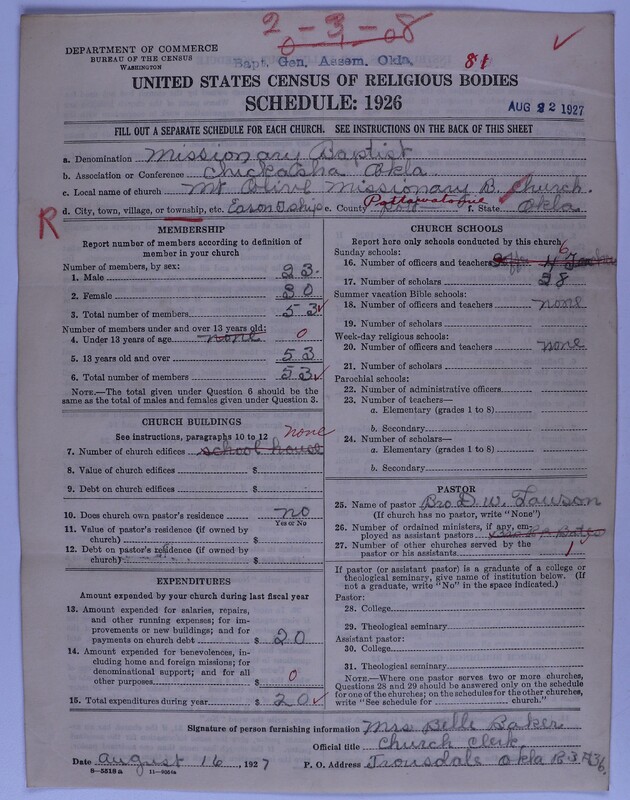 2-3-08
0
DEPARTMENT OF COMMERCE
BUREAU OF THE CENSUS
WASHINGTON
Bapt. Gen. Assem. Okla.
81
UNITED STATES CENSUS OF RELIGIOUS BODIES
SCHEDULE: 1926
AUG 22 1927
FILL OUT A SEPARATE SCHEDULE FOR EACH CHURCH. SEE INSTRUCTIONS ON THE BACK OF THIS SHEET
a. Denomination Missionary Baptist
b. Association or Conference Chickasha Okla
c. Local name of church Mt Olive Missionary B. Church.
R
d. City, town, village, or township, etc. Eason T ship e. County Pottawatomie f. State Okla
MEMBERSHIP
Report number of members according to definition of member in your church
Number of members, by sex:
1. Male 23.
2. Female 30
3. Total number of members 53
Number of members under and over 13 years old:
4. Under 13 years of age none 0
5. 13 years old and over 53
6. Total number of members 53
NOTE.—The total given under Question 6 should be the same as the total of males and females given under Question 3.
CHURCH BUILDINGS
See instructions, paragraphs 10 to 12
none
7. Number of church edifices school house
8. Value of church edifices $
9. Debt on church edifices $
10. Does church own pastor's residence? no
Yes or No
11. Value of pastor's residence (if owned by church) $
12. Debt on pastor's residence (if owned by church) $
EXPENDITURES
Amount expended by your church during last fiscal year
13. Amount expended for salaries, repairs, and other running expenses; for improvements or new buildings; and for payments on church debt $ 20
14. Amount expended for benevolences, including home and foreign missions; for denominational support; and for all other purposes $ 0
15. Total expenditures during year $ 20
CHURCH SCHOOLS
Report here only schools conducted by this church
Sunday schools:
6
16. Number of officers and teachers 4
17. Number of scholars 28
Summer vacation Bible schools:
18. Number of officers and teachers none
19. Number of scholars
Week-day religious schools:
20. Number of officers and teachers none
21. Number of scholars
Parochial schools:
22. Number of administrative officers
23. Number of teachers—
a. Elementary (grades 1 to 8)
b. Secondary
24. Number of scholars—
a. Elementary (grades 1 to 8)
b. Secondary
PASTOR
25. Name of pastor Bro D. W. Lawson
(If church has no pastor, write "None")
26. Number of ordained ministers, if any, employed as assistant pastors
27. Number of other churches served by the pastor or his assistants 1
If pastor (or assistant pastor) is a graduate of a college or theological seminary, give name of institution below. (If not a graduate, write "No" in the space indicated.)
Pastor:
28. College
29. Theological seminary
Assistant pastor:
30. College
31. Theological seminary
NOTE.—Where one pastor serves two or more churches, Questions 28 and 29 should be answered only on the schedule for one of the churches; on the schedules for the other churches, write "See schedule for ______ church."
Signature of person furnishing information Mrs Belle Baker
Official title Church Clerk.
Date August 16, 1927
P. O. Address Trousdale Okla R.3.
8-5518a 11-9051a